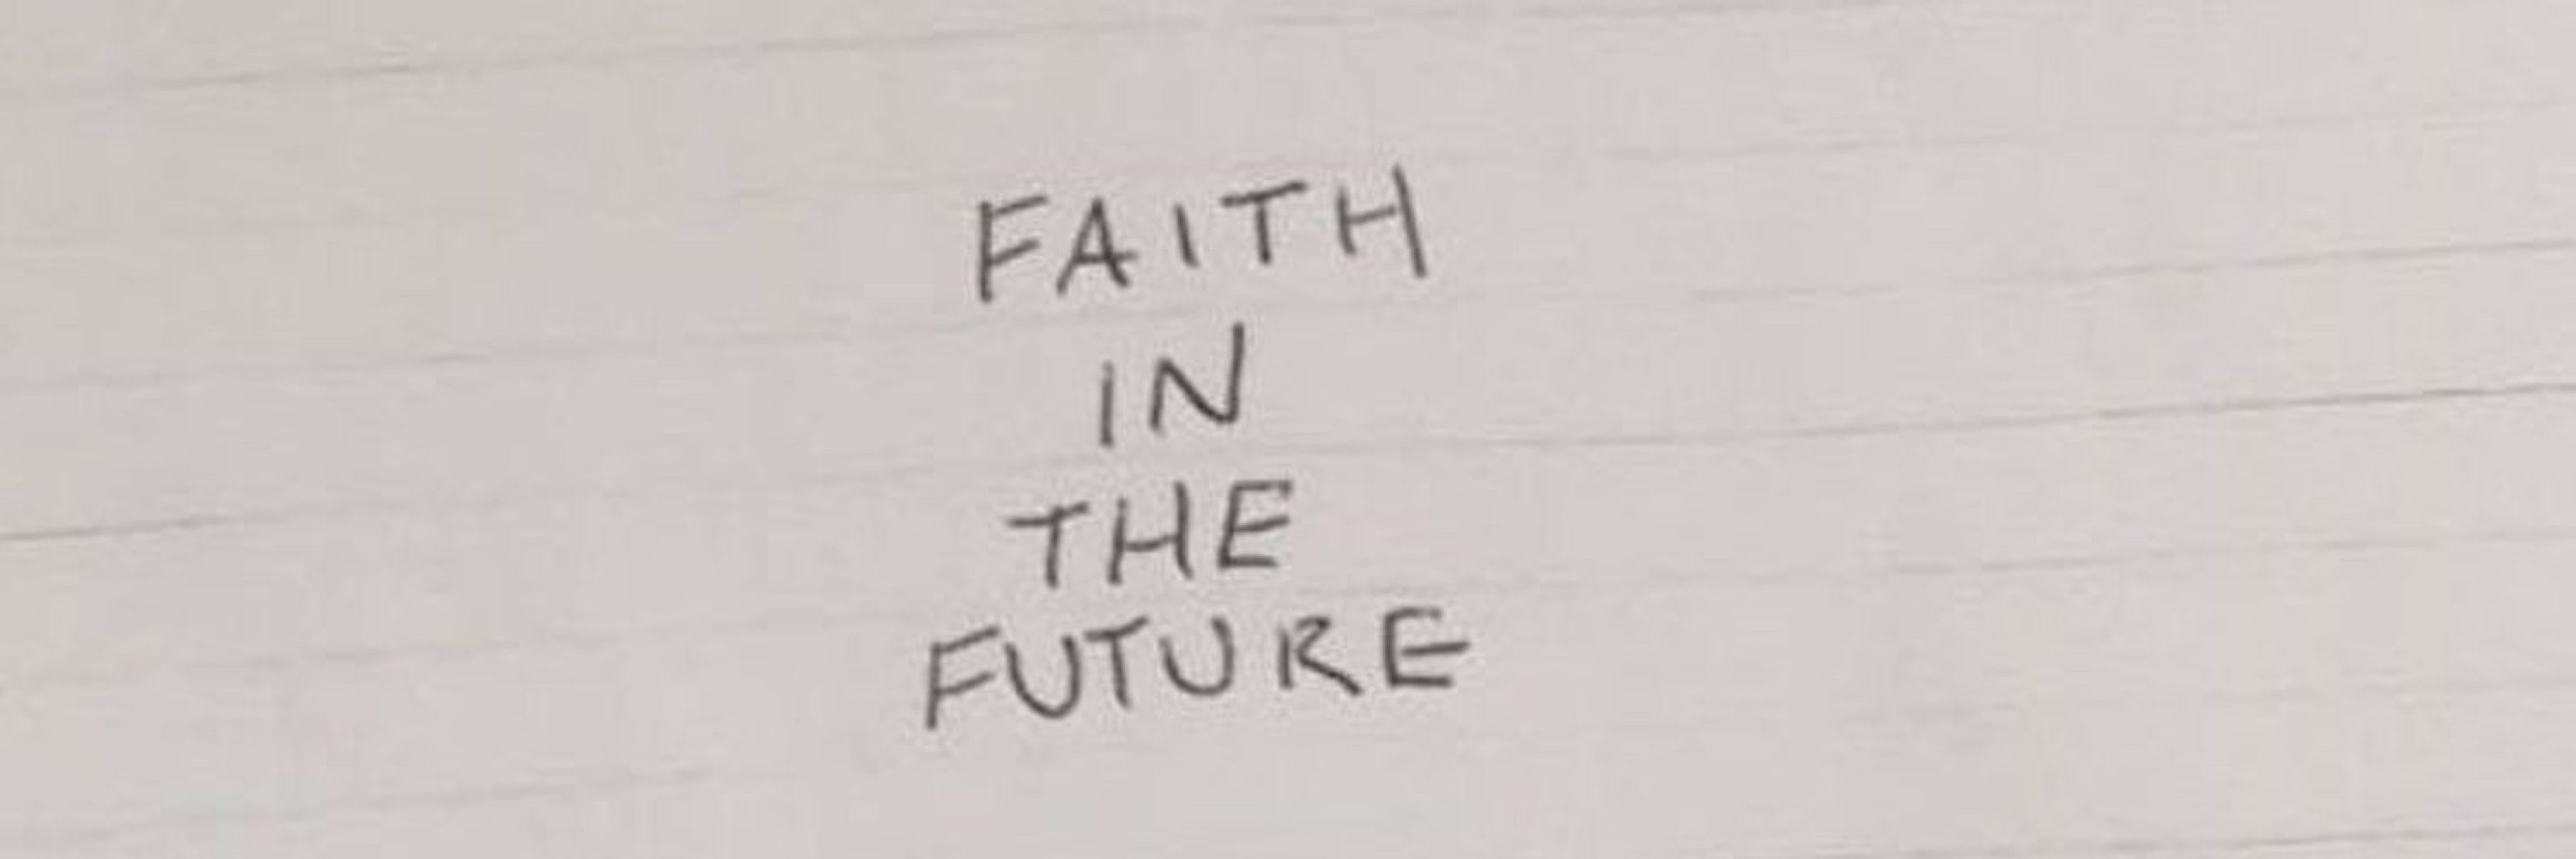 FAITH
IN
THE
FUTURE